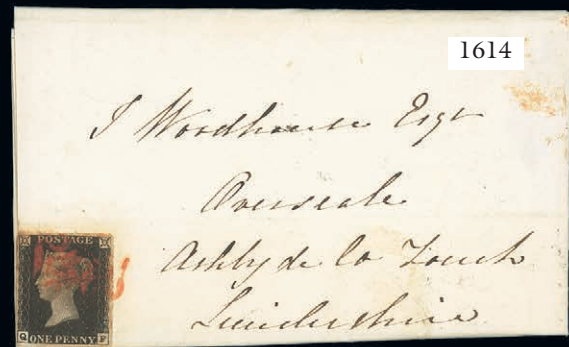 1614
J Woodhouse Esqr
Overseale
Ashby de la Zouch
Leicestershire
POSTAGE
Q ONE PENNY F